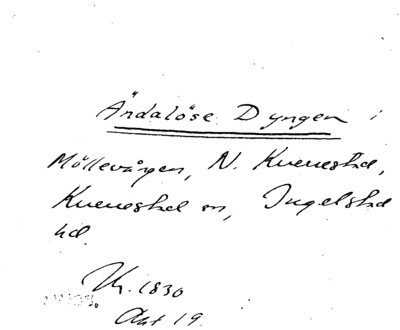 Ändalöse Dyngen i
Möllevången, N. Kverrestad,
Kverrestad sn, Ingelstad
hd.
Uk. 1830
Akt 19.